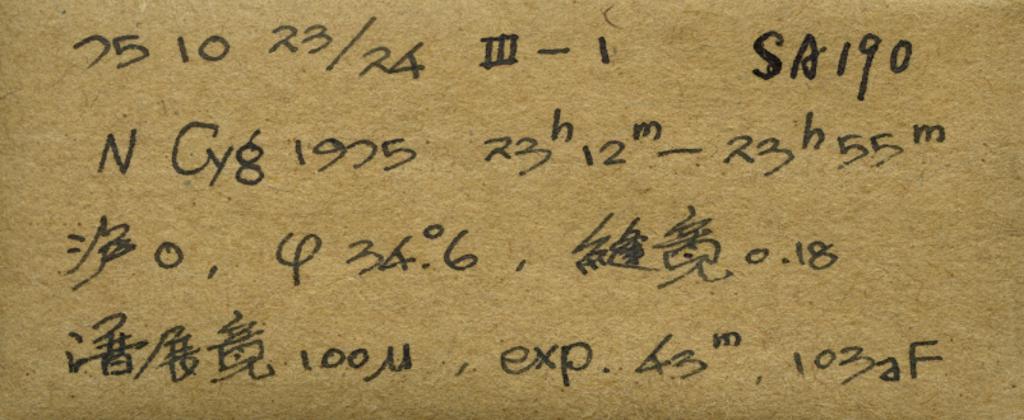 75 10 23/24 III-1 SA190
N Cyg 1975 23h12m-23h55m
沪0, φ 34.°6, 縫寬0.18
谱展寬100μ, exp. 43m, 103aF